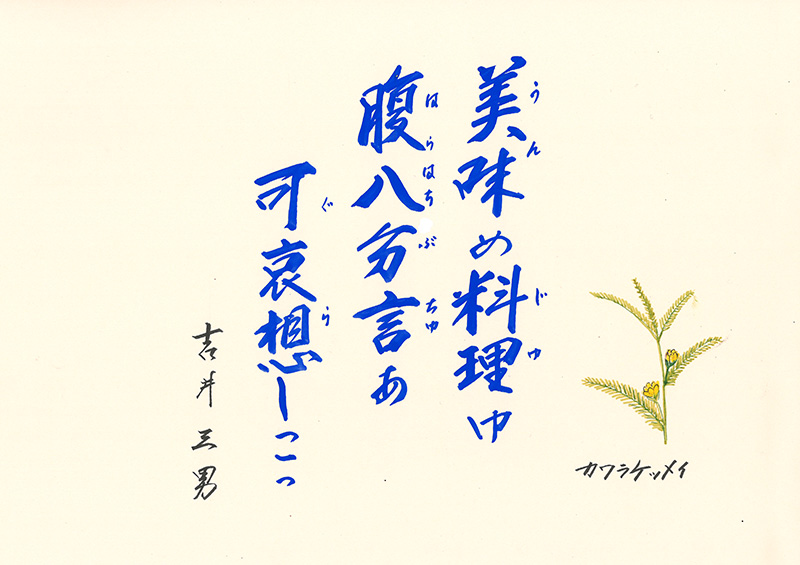 美味め料理ゆ
うん じゆ
腹八分言あ
はらはちぶちゆ
可哀想しこっ
ぐら
吉井三男
カワラケツメイ